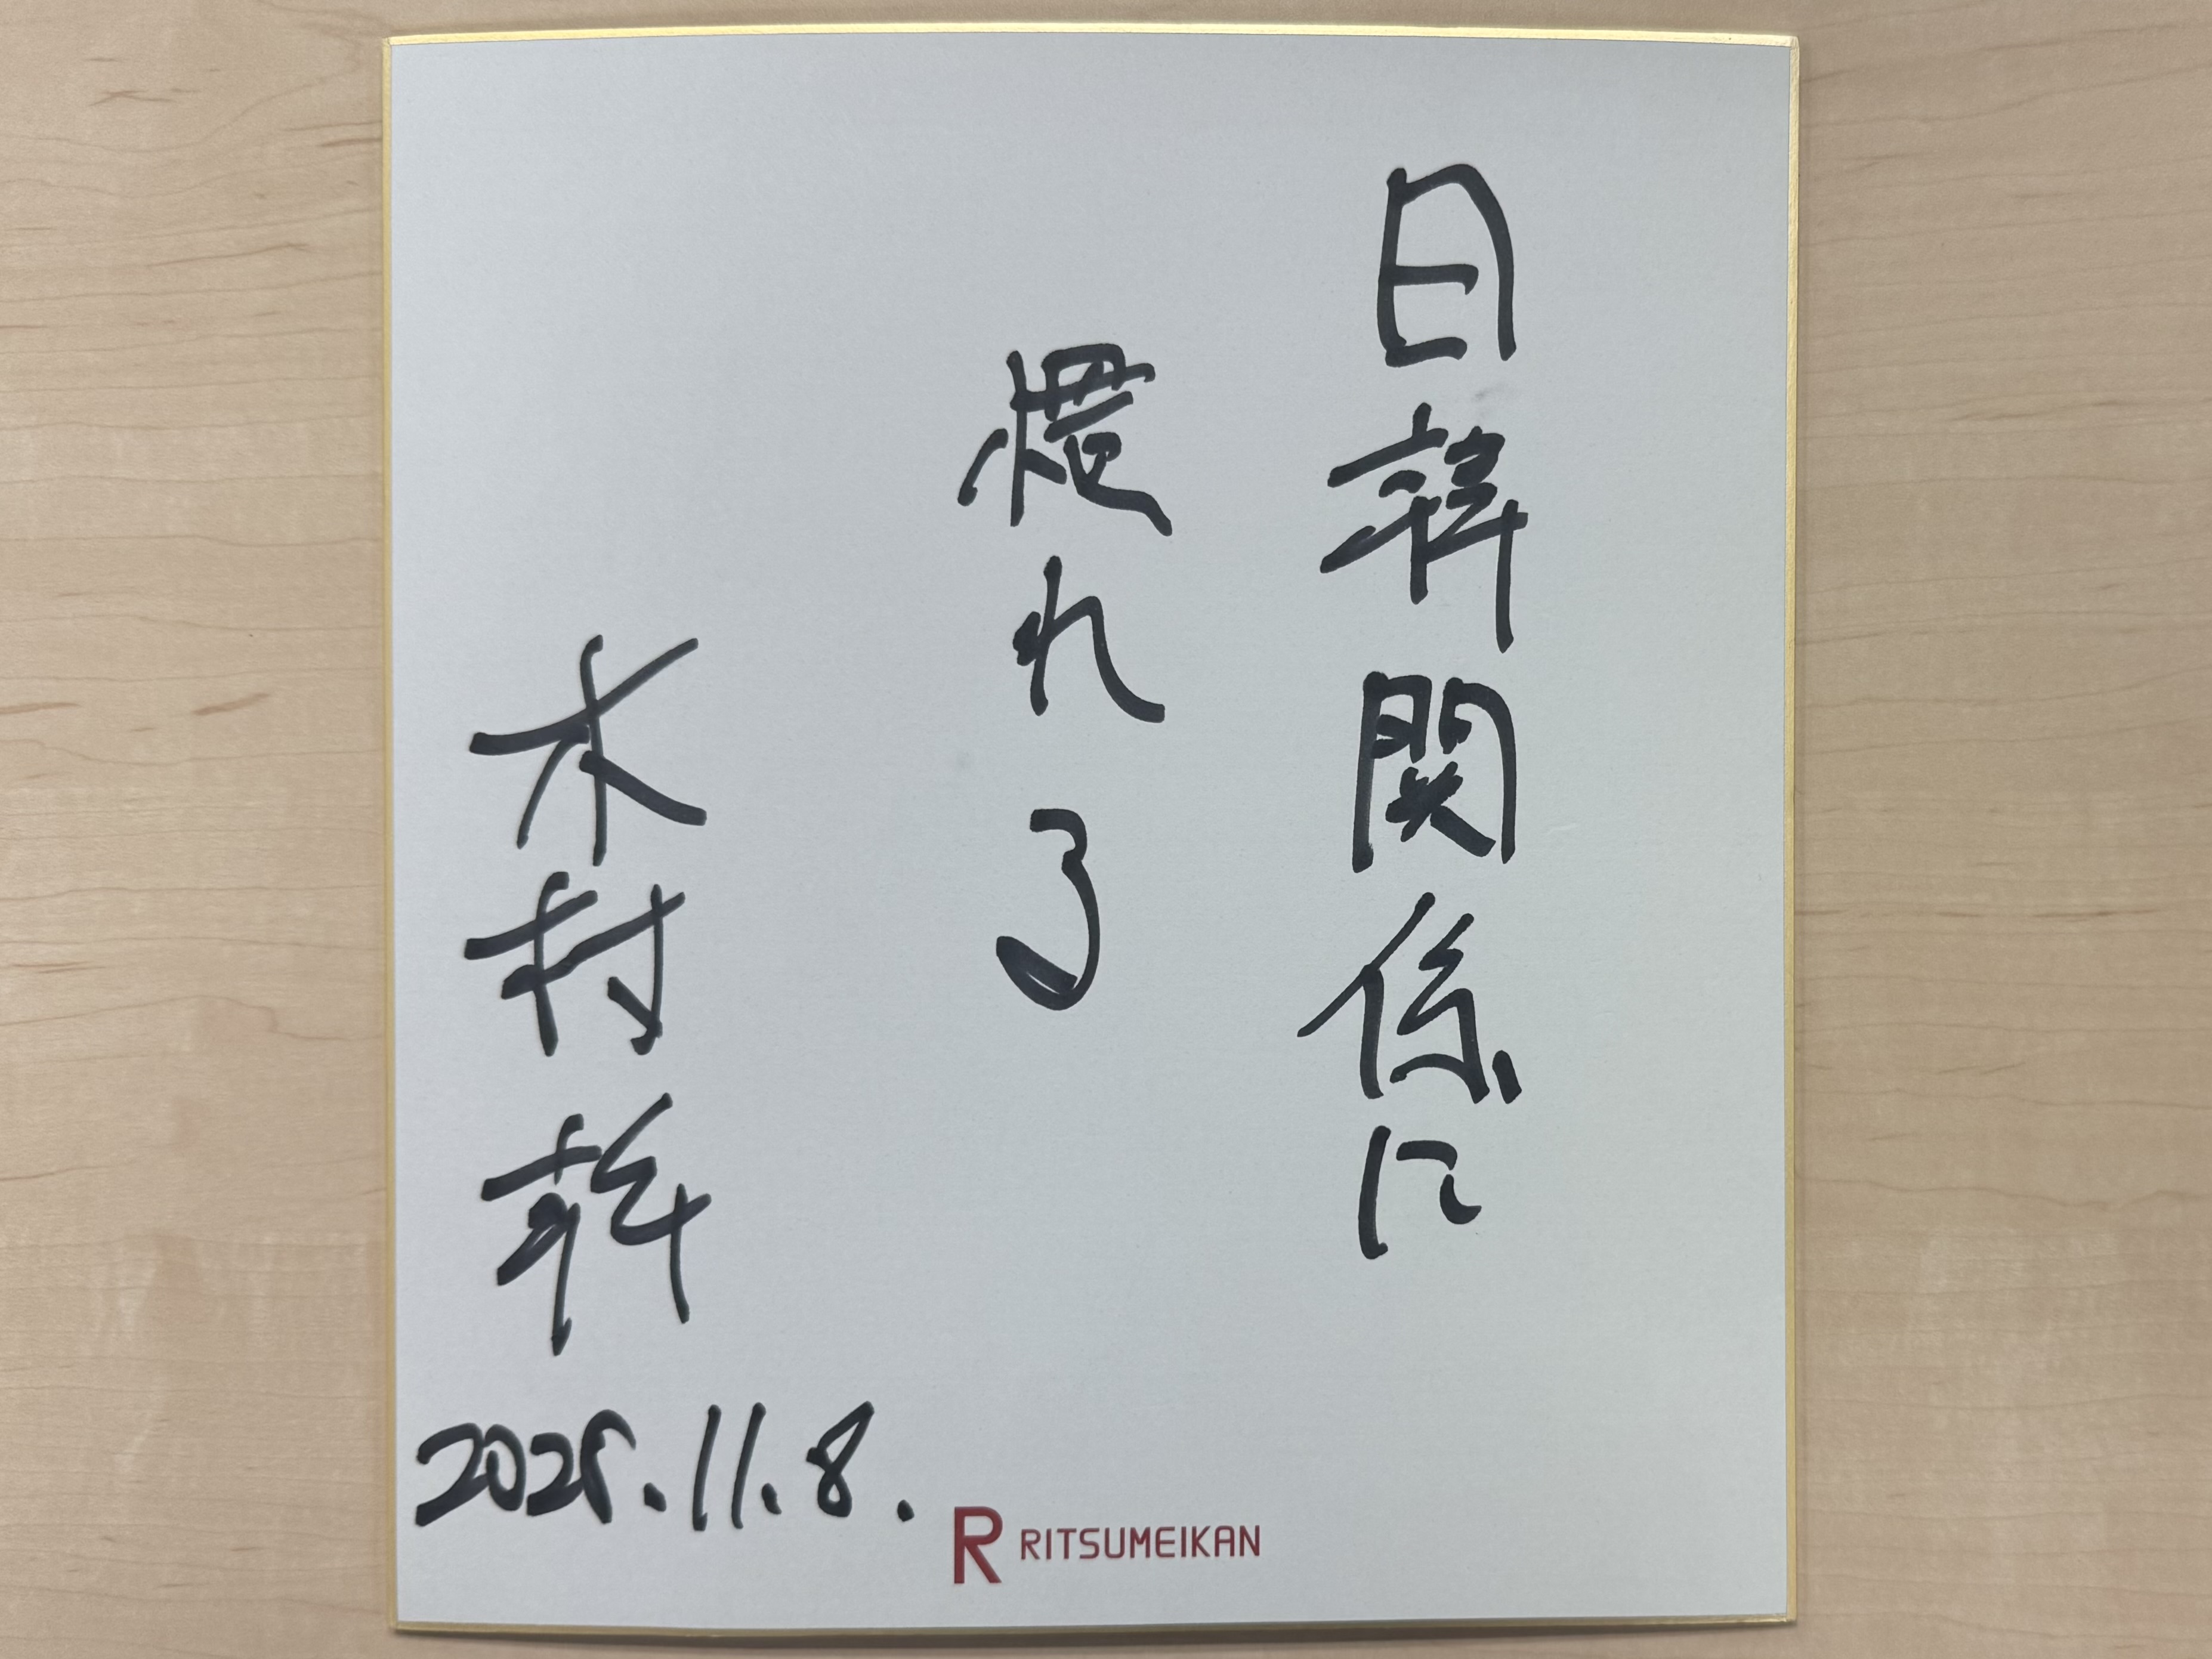 日韓関係に
慣れる
木村幹
2025.11.8.
RITSUMEIKAN